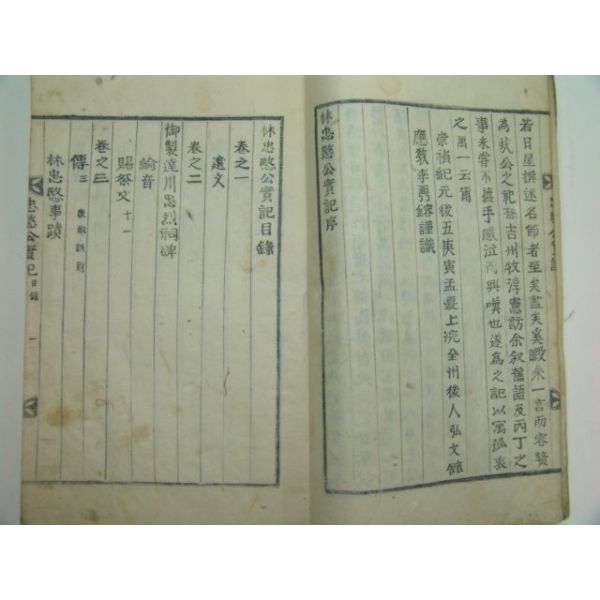 若日星撰述名師者至矣盡矣奚暇余一言而容贅
為於公之祀孫吉州牧淳憲訪余叙舊語及丙丁之
事未嘗不攄手感泣而興嘆也遂為之記以寓孤衷
之萬一云爾
崇禎紀元後五庚寅孟夏上浣全州後人弘文館
應敎李 鎔謹識
林忠愍公實記序
林忠愍公實記目錄
卷之一
遺文
卷之二
御製達川忠烈祠碑
綸音
賜祭文 十一
卷之三
傳 三
林忠愍事蹟
忠愍公實記 目錄 一